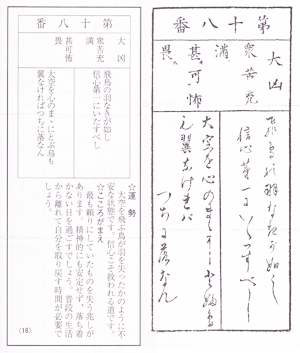 第十八番
大凶
衆苦充満
甚可怖畏
飛鳥の羽なきが如し
信心第一にいたすべし
大空を心のまゝにとぶ鳥も
翼なければつちに落なん
☆運勢
大空を飛ぶ鳥が羽を失つたかのように不
安な状態です。信心こそ救われる道です。
☆こころがまえ
最も頼りにしていたものを失う兆しが
あります。精神的にも安定せず、落ち着
かない日を過ごすでしょう。普段の生活
から離れて自分を取り戻す時間が必要で
しょう。
(18)
第十八番
大凶
衆苦充
満
甚可怖
畏
信心第一にいたすべし
大空を心のまゝにとぶ鳥
も翼なければ
つちに落なん